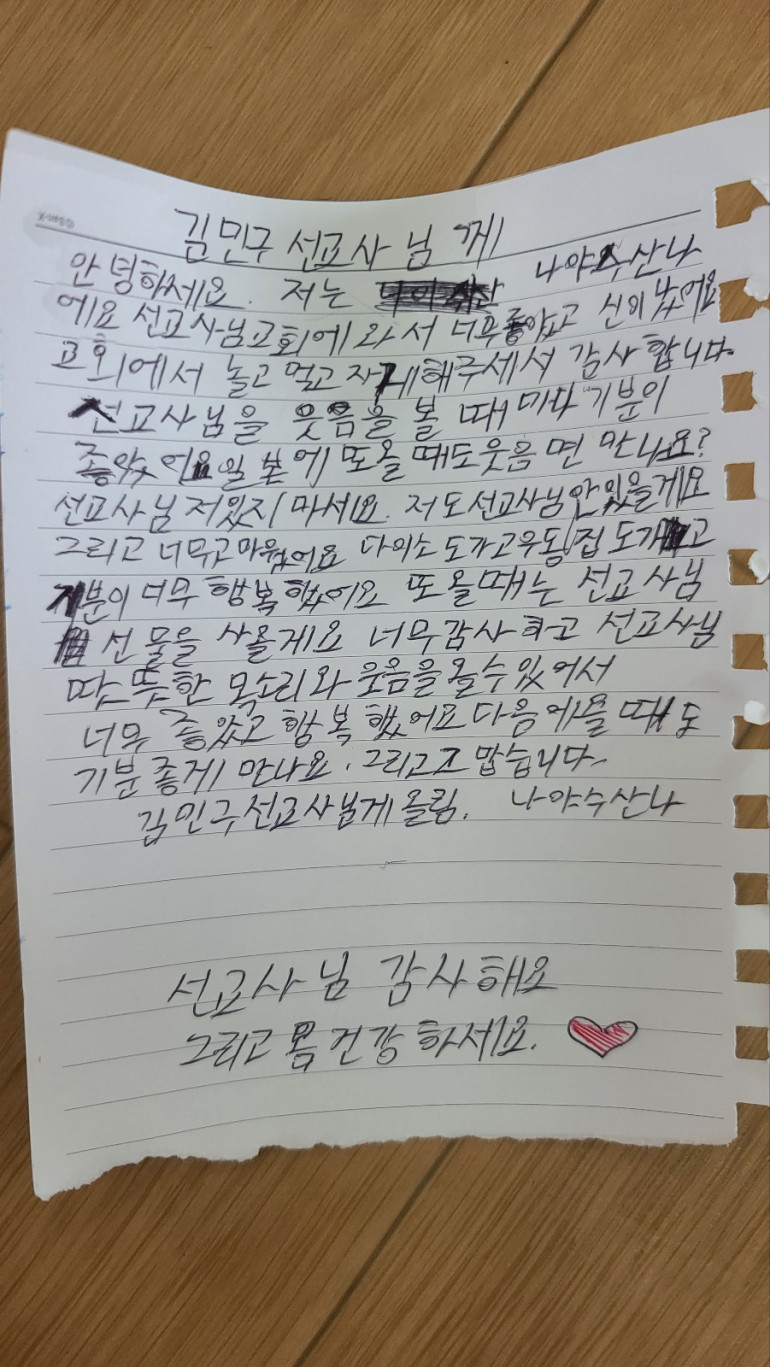 김민구 선교사님 께
안녕하세요. 저는 나야수산나
에요 선교사님교회에 와서 너무좋았고 신이 났어요
교회에서 놀고 먹고 자게해주셔서 감사 합니다
선교사님을 웃음을 볼 때 미다 기분이
좋았 어요 일 본에 또올 때도웃음 면 만나요?
선교사님 저잊지 마세요. 저도선교사님안잊을게요
그리고 너무고마웠어요 다이소도가고우동집도가고
기분이 너무 행복 했어요 또 올때는 선교 사님
선 물을 사올게요 너무감사하고 선교사님
따뜻한 목소리와 웃음을 올수 있 어서
너무 좋았고 행복 했어요다음에올 때 도
기분 좋게 만나요. 그리고 맙습니다.
김민구선교사님게올림. 나야수산나
선교사님 감사해요
그리고 몸 건강 하세요.